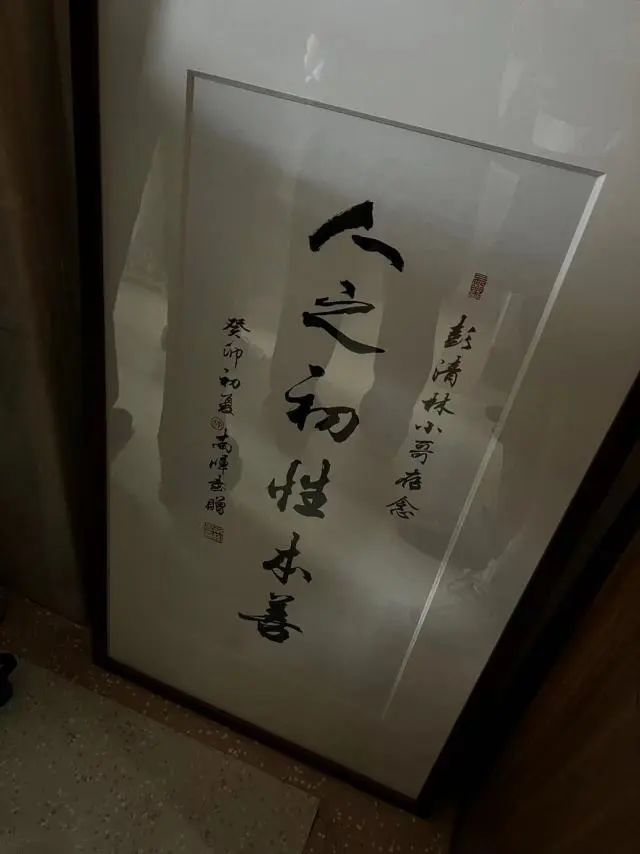 彭清林小哥存念
人之初性本善
癸卯初夏南晖书赠